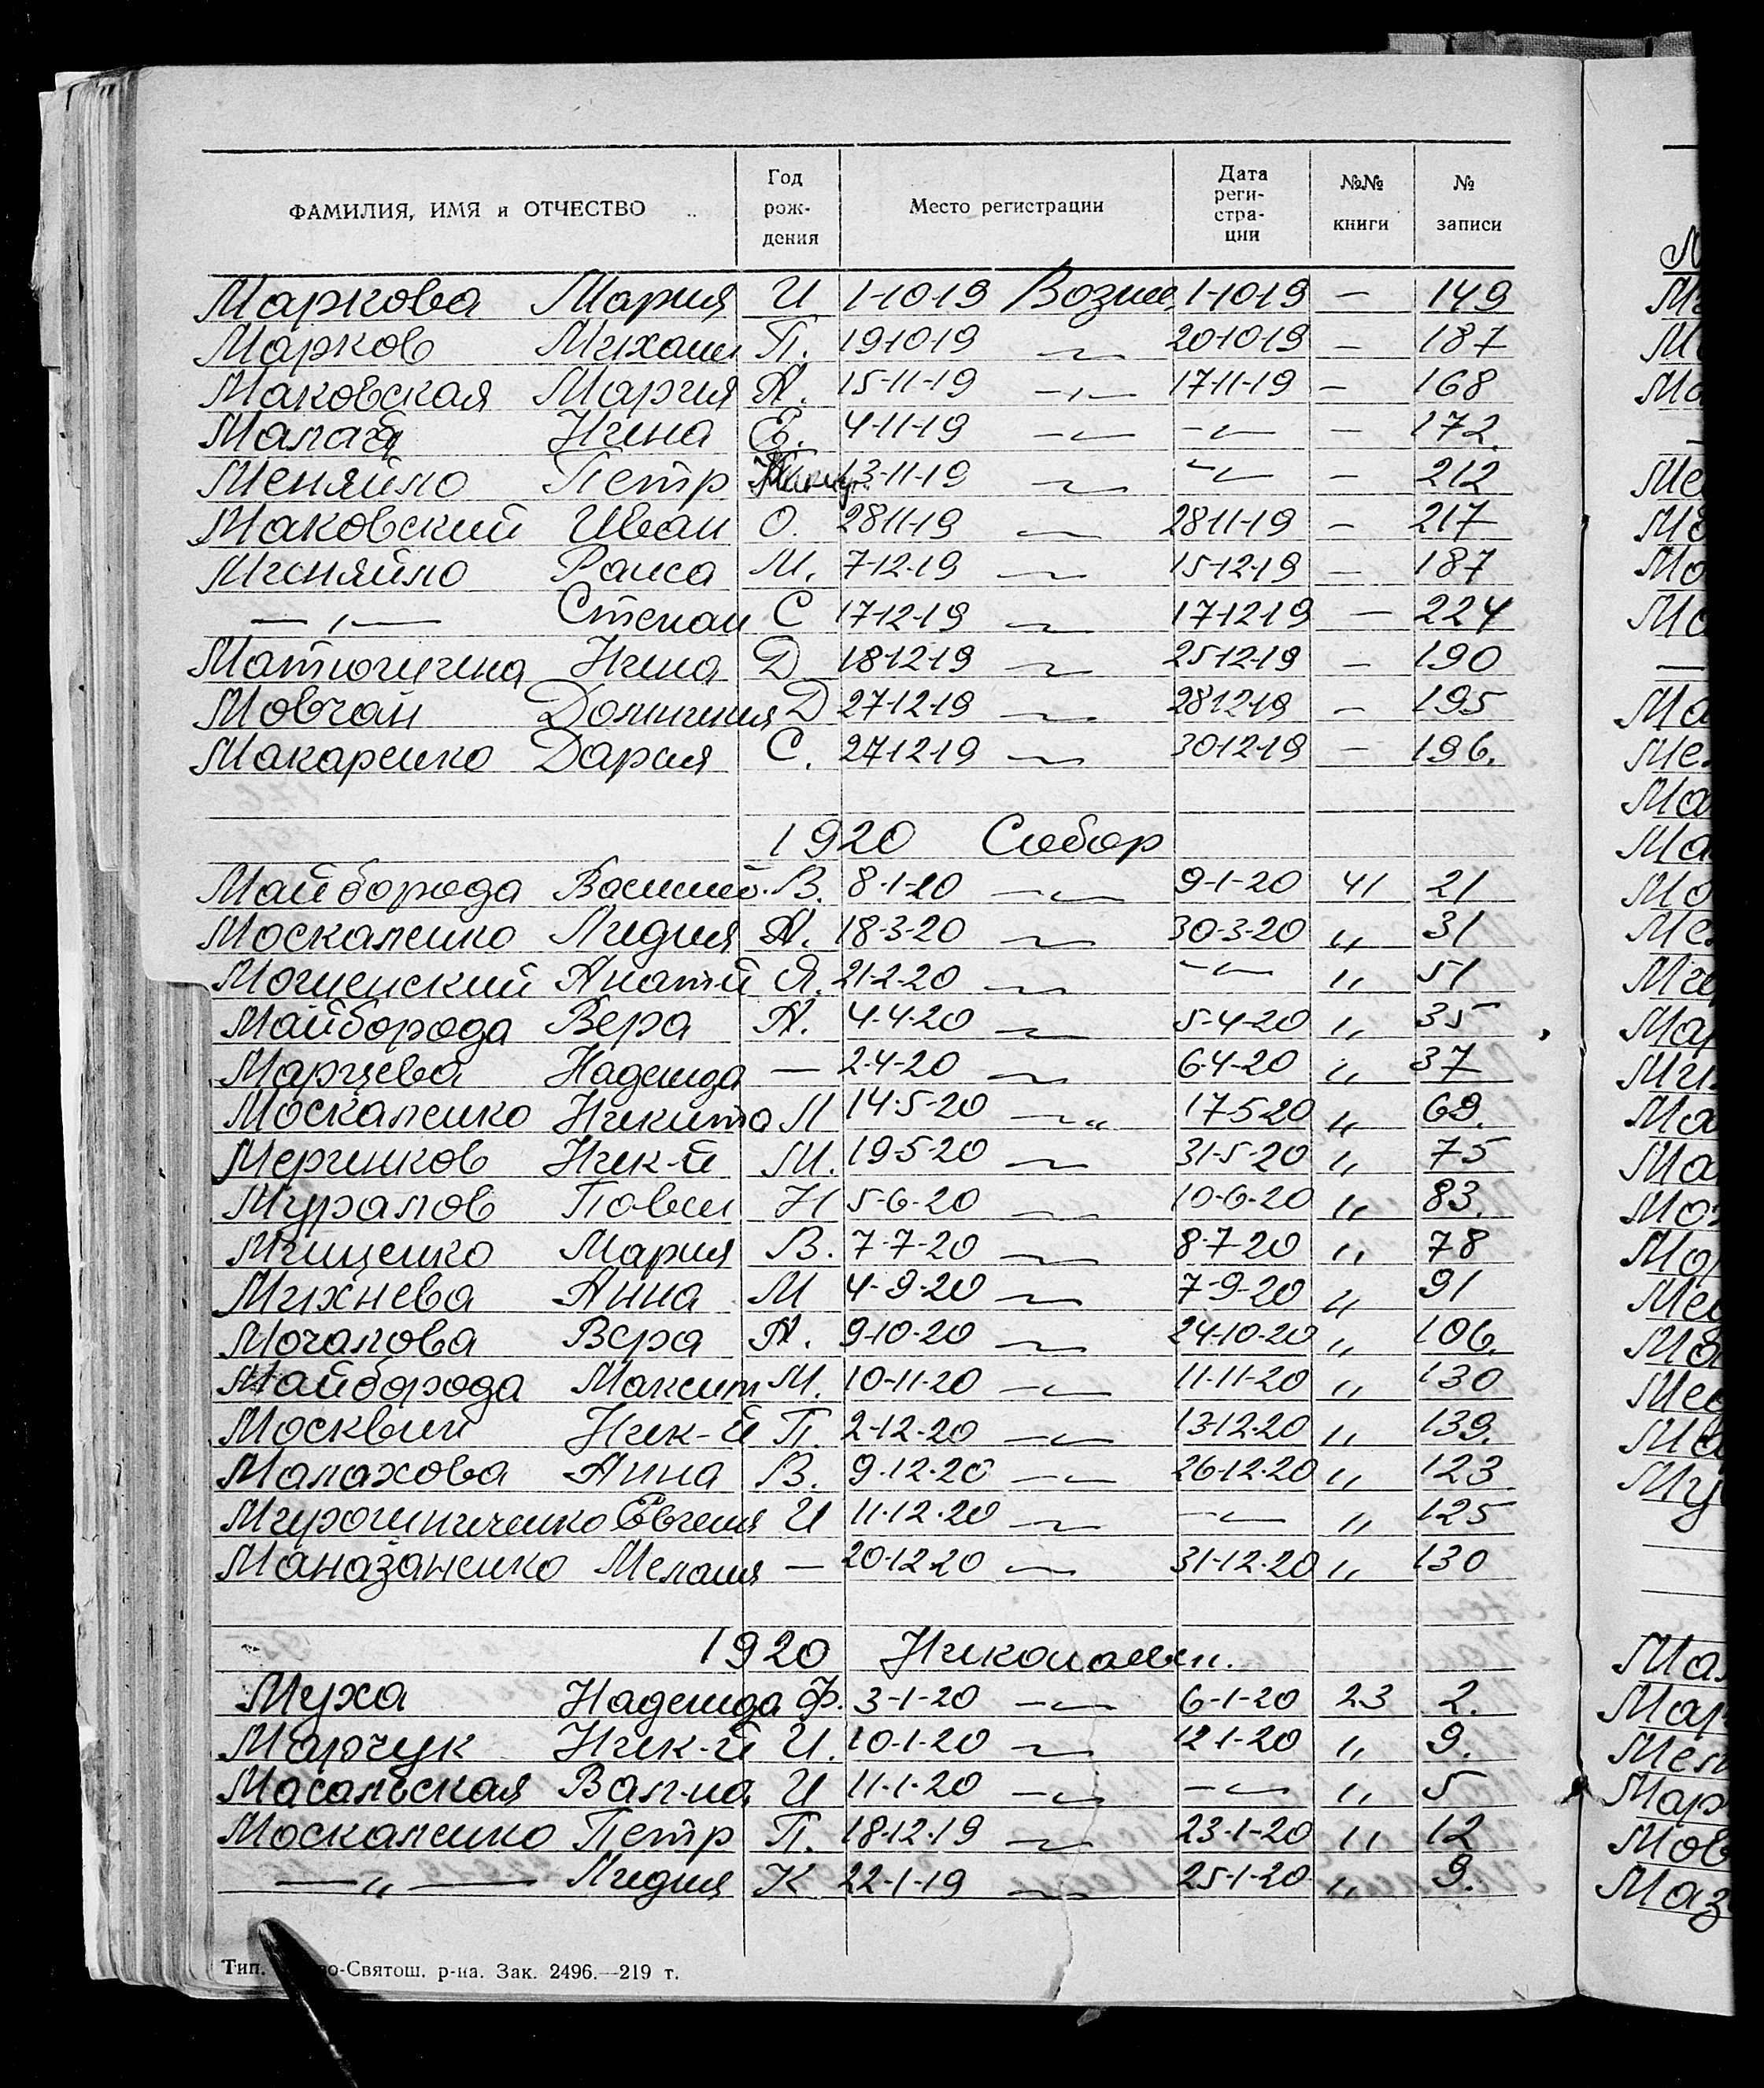 ФАМИЛИЯ, ИМЯ и ОТЧЕСТВО Год рож-дения Место регистрации Дата реги-стра-ции №№ книги № записи
Маркова Мария И 1-10-19 Возне 1-10-19 — 149
Марков Михаил П. 19-10-19 —〃— 20-10-19 — 187
Маковская Мария А. 15-11-19 —〃— 17-11-19 — 168
Малай Нина Е. 4-11-19 —〃— —〃— — 172.
Меняйло Петр 13-11-19 —〃— —〃— — 212
Маковский Иван О. 28-11-19 —〃— 28-11-19 — 217
Миняйло Раиса М. 7-12-19 —〃— 15-12-19 — 187
—〃— Степан С 17-12-19 —〃— 17-12-19 — 224
Матюшина Нина Д 18-12-19 —〃— 25-12-19 — 190
Мовчан Домникия Д 27-12-19 —〃— 28-12-19 — 195
Макаренко Дария С. 27-12-19 —〃— 30-12-19 — 196.
1920 Собор
Майборода Василий В. 8-1-20 —〃— 9-1-20 41 21
Москаленко Лидия А. 18-3-20 —〃— 30-3-20 〃 31
Мошенский Анат-й Я. 21-2-20 —〃— —〃— 〃 51
Майборода Вера А. 4-4-20 —〃— 5-4-20 〃 35
Марцева Надежда — 2-4-20 —〃— 6-4-20 〃 37
Москаленко Никита Л 14-5-20 —〃— 17-5-20 〃 69.
Меринков Ник-й М. 19-5-20 —〃— 31-5-20 〃 75
Муралов Павел Н 5-6-20 —〃— 10-6-20 〃 83.
Мищенко Мария В. 7-7-20 —〃— 8-7-20 〃 78
Михнева Анна М 4-9-20 —〃— 7-9-20 〃 91
Мочалова Вера А. 9-10-20 —〃— 24-10-20 〃 106.
Майборода Максим М. 10-11-20 —〃— 11-11-20 〃 130
Москвин Ник-й П. 2-12-20 —〃— 13-12-20 〃 139.
Малахова Анна В. 9-12-20 —〃— 26-12-20 〃 123
Мирошниченко Евгения И 11-12-20 —〃— —〃— 〃 125
Маназаненко Мелания — 20-12-20 —〃— 31-12-20 〃 130
1920 Николаевск.
Муха Надежда Ф. 3-1-20 —〃— 6-1-20 23 2.
Марчук Ник-й И. 10-1-20 —〃— 12-1-20 〃 9.
Масальская Вал-на И 11-1-20 —〃— —〃— 〃 5
Москаленко Петр П. 18-12-19 —〃— 23-1-20 〃 12
—〃— Лидия К 22-1-19 —〃— 25-1-20 〃 9.
Тип. о-Святош. р-на. Зак. 2496.—219 т.